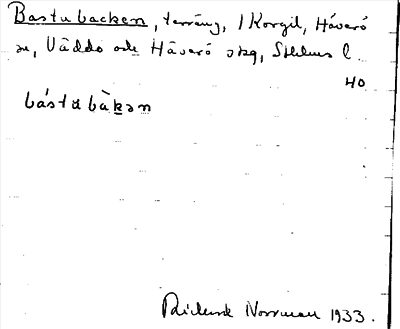 Bastubacken, terräng, i Korgil, Häverö
sn, Väddö och Häverö skg, Sthlms l.
40
bástu bàkən
Rickard Norrman 1933.